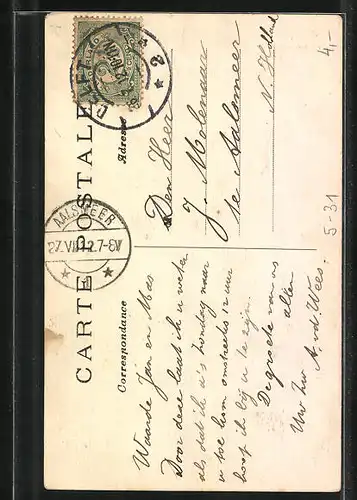 CARTE POSTALE
Correspondance
Adresse
DELFT
AALSMEER
Waarde Jan en
Door deze laat ik u weten
als dat ik a's Zondag naar
u toe kom omstreeks 12 uur
hoop ik bij u te zijn.
De groete van ons
allen
Uw
A. vd. Wees.
Den Heer
J. Molenaar
te Aalsmeer
N. Holland
4,-
5-31